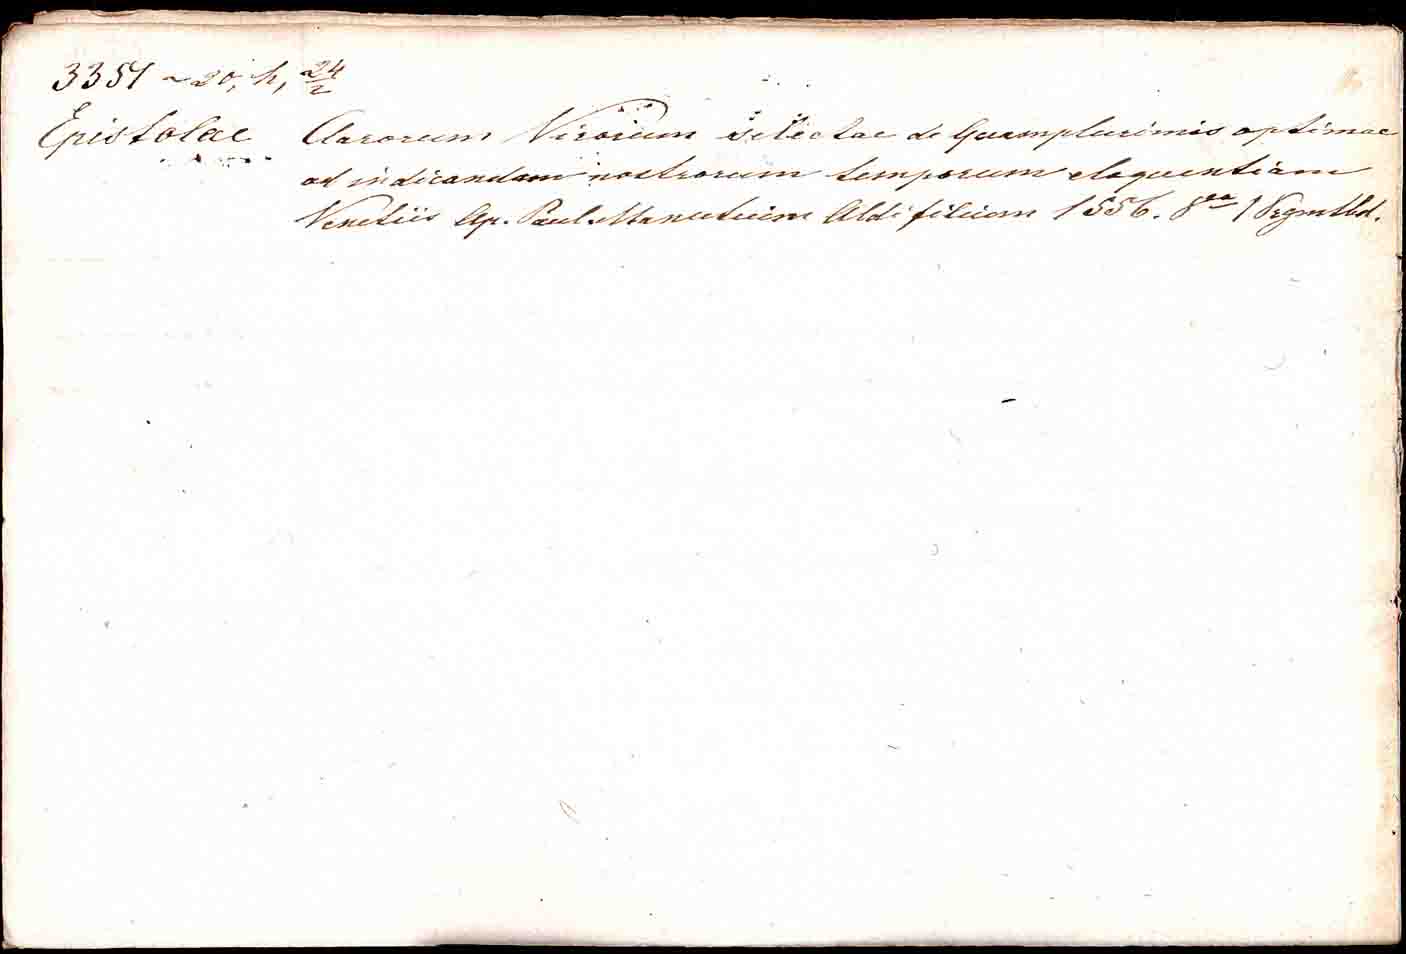 3351 ~ 20, h, 24/2
Epistolae Clarorum Virorum selectae de Quamplurimis optimae
ad indicandam nostrorum temporum eloquentiam
Venetiis Ap. Paul. Manutium Aldi filium 1556. 8vo 1 Prgmtbd.